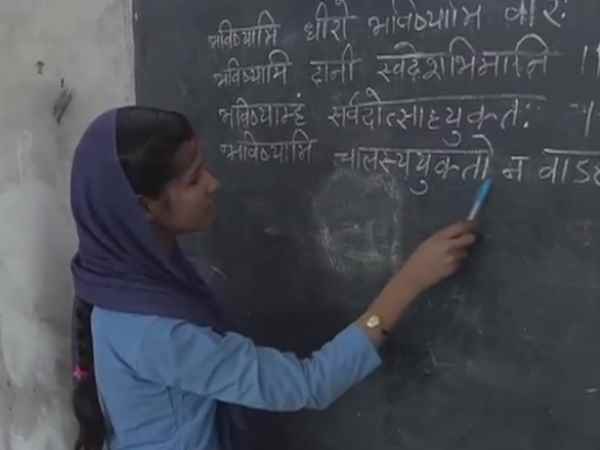 भविष्यामि धीरो भविष्यामि वीरः
भविष्यामि दानी स्वदेशभिमानि ।।
भविष्याम्हं सर्वदोत्साहयुक्तः
भविष्यामि चालस्ययुक्तो न वाऽह